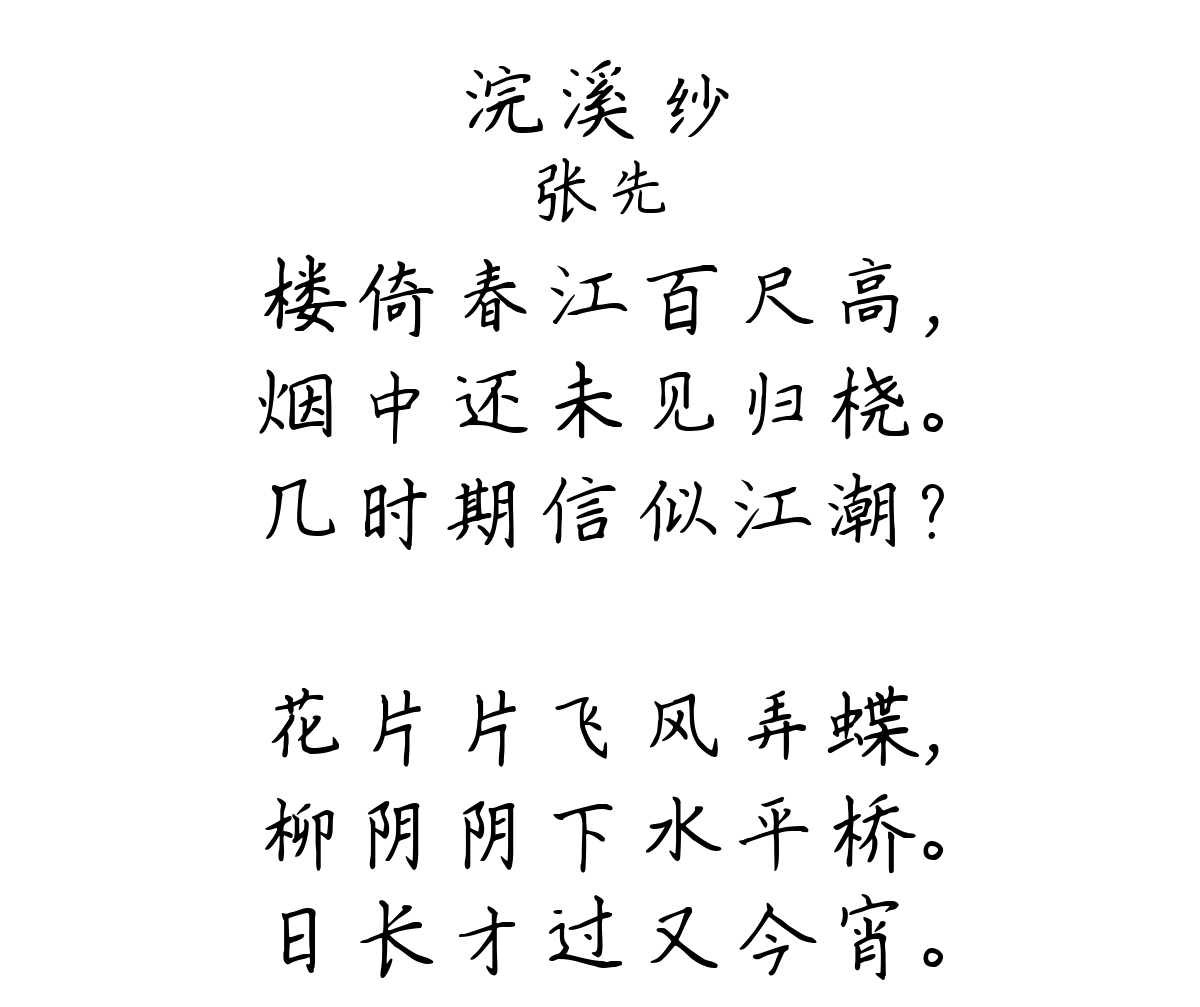 浣溪纱
张先
楼倚春江百尺高，
烟中还未见归桡。
几时期信似江潮？
花片片飞风弄蝶，
柳阴阴下水平桥。
日长才过又今宵。